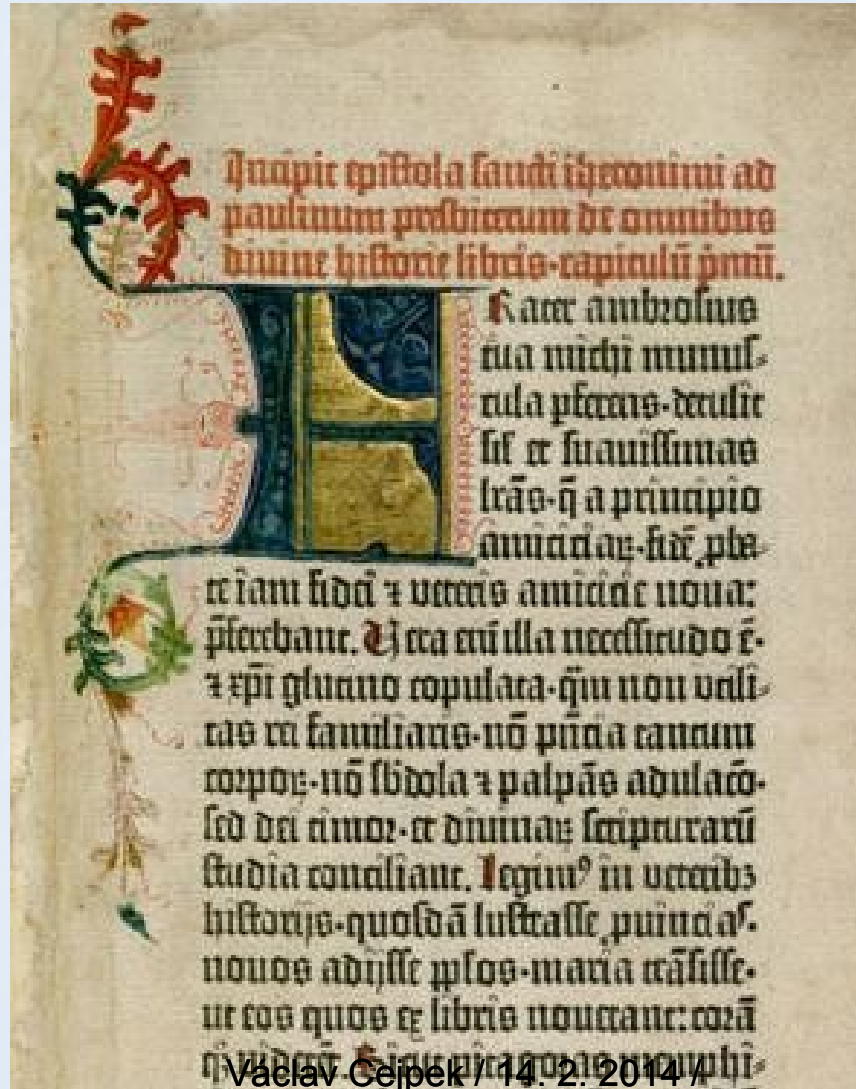 Incipit epistola sancti iheronimi ad
paulinum presbiterum de omnibus
diuine historie libris·capitulũ pͥmũ.
FRater ambrosius
tua michi munus-
cula ꝑferens·detulit
siĺ et suauissimas
lr̃as·q̃ a principio
amiciciaꝝ·fidẽ ꝓba-
te iam fidei ⁊ veteris amicicie noua:
p̃ferebant. Vera eni͂ illa necessitudo ẽ·
⁊ xp̃i glutino copulata·q̃m non vtili-
tas rei familiaris·nõ pñcia tantum
corpoꝝ·nõ sb̾dola ⁊ palpãs adulacõ·
sed dei timor·et diuinaꝝ scripturarũ
studia conciliant. Legimꝰ in veteribꝫ
historijs·quosdã lustrasse ꝓuincias·
nouos adijsse pp̃los·maria trãsisse·
ut eos quos ex libris nouerant: corã
Václav Cejpek / 14. 2. 2014 /